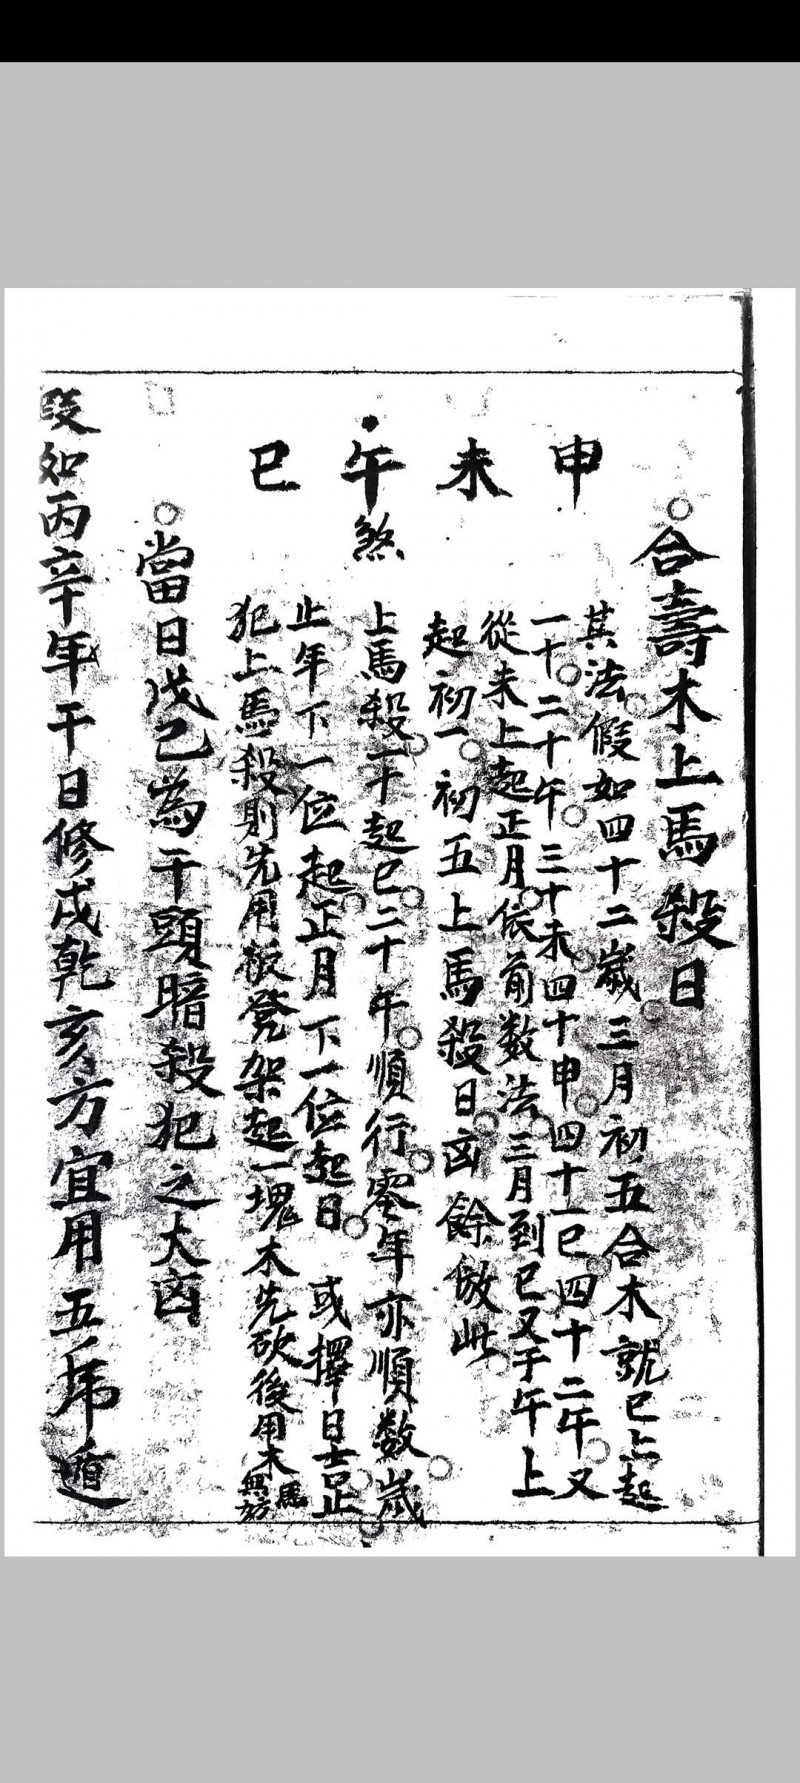 合壽木上馬殺日
申 未 午煞 巳
其法假如四十二歲三月初五合木就巳上起
一十二十午三十未四十申四十一巳四十二午又
從未上起正月依前数法三月到巳又于午上
起初一初五上馬殺日凶餘倣此
上馬殺一十起巳二十午順行零年亦順数歲
止年下一位起正月下一位起日 或擇日士足
犯上馬殺則先用板凳架起一塊木先砍後用木馬無妨
當日戊己為干頭暗殺犯之大凶
叚如丙辛年干日修戌乾亥方宜用五虎遁